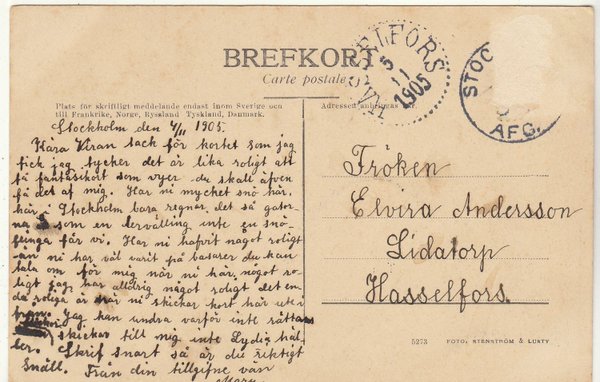 BREFKORT
Carte postale
HASSELFORS
5
11
1905
STOC
AFG.
Plats för skriftligt meddelande endast inom Sverige och
till Frankrike, Norge, Ryssland Tyskland, Danmark.
Adressen anbringas här.
Stockholm den 4/11 1905.
Kära Vän tack för kortet som jag
fick jag tycker det är lika roligt att
få fantasikort som vyer du skall äfven
få det af mig. Har ni mycket snö här,
här i Stockholm bara regnar det så gator-
na som en tervälling inte en snö-
flinga får vi. Har ni haft något roligt
an ni har väl varit på basarer du kan
tala om för mig när ni här något ro-
ligt jag har alldrig något roligt det en-
da roliga är när ni skickar kort här ute i
Jag kan undra varför inte
skickar till mig inte Lydia häl-
ler. Skrif snart så är du riktigt
Snäll. Från din tillgifne vän
Fröken
Elvira Andersson
Lidatorp
Hasselfors.
5273 FOTO, STENSTRÖM & LUSTY